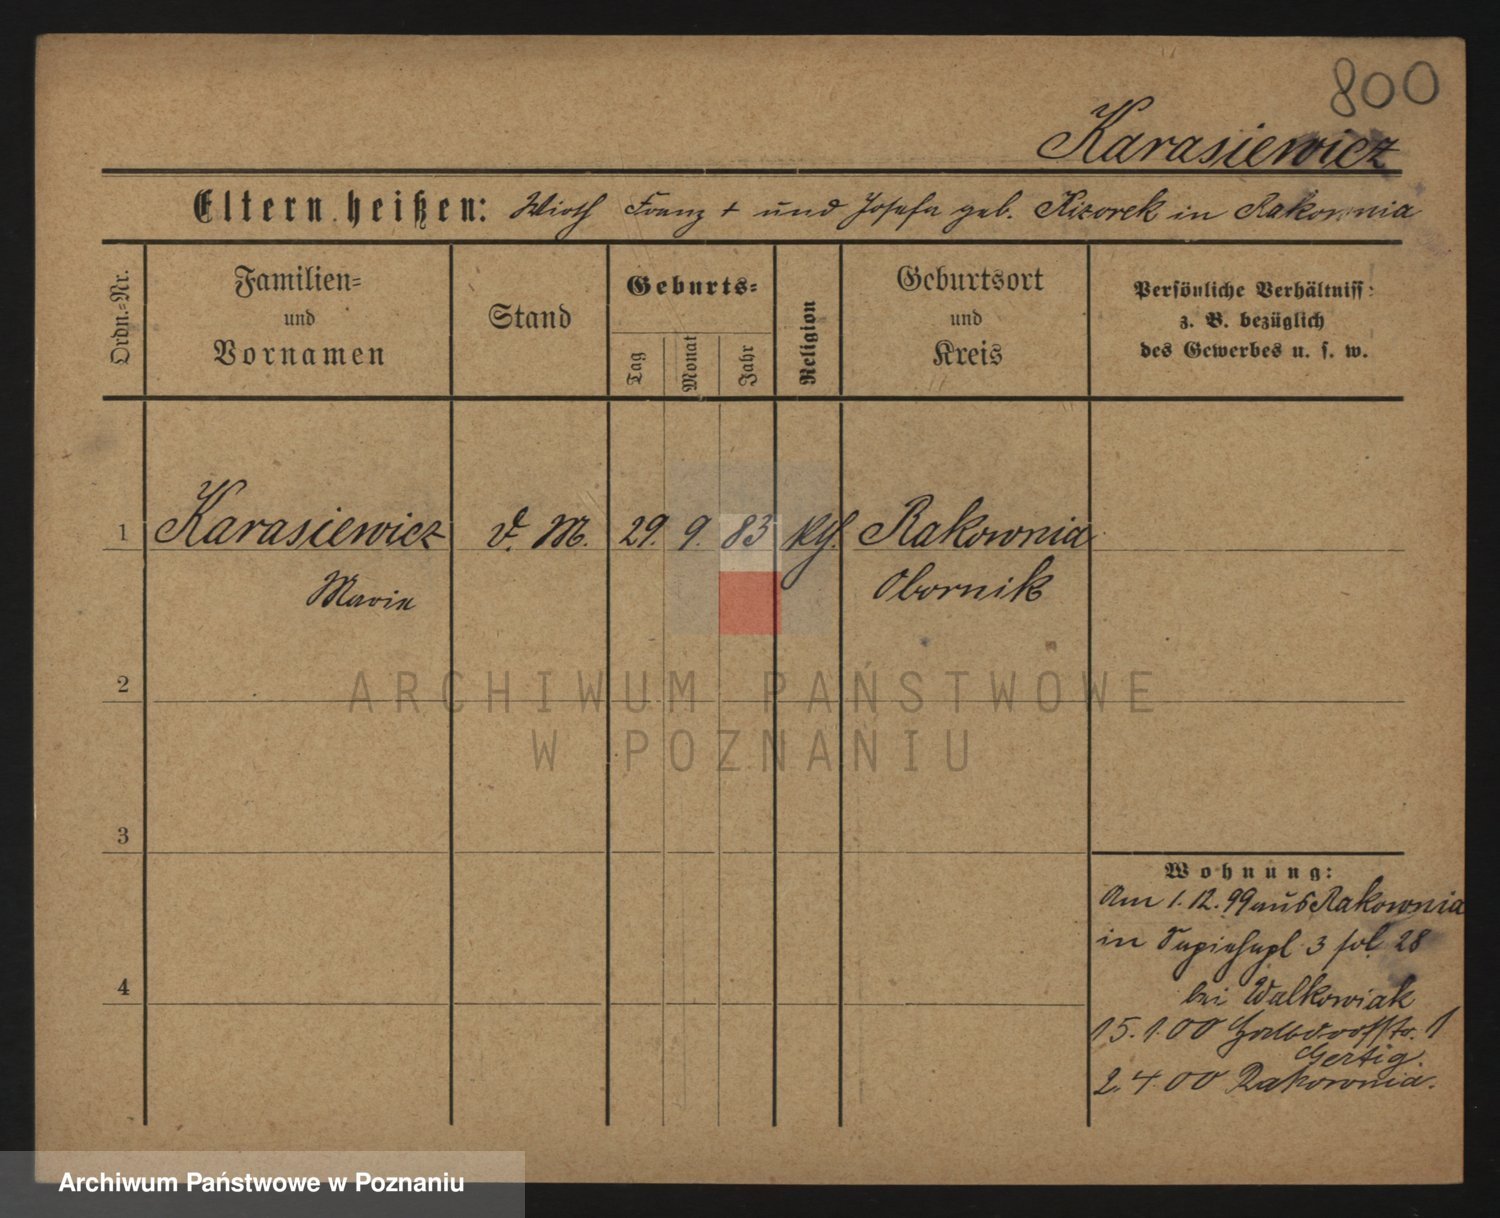 800
Karasiewicz
Eltern heißen: Wirth Franz + und Josefa geb. Kizorek in Rakownia
Ordn.-Nr.
Familien-
und
Vornamen
Stand
Geburts-
Tag
Monat
Jahr
Religion
Geburtsort
und
Kreis
Persönliche Verhältniss:
z. B. bezüglich
des Gewerbes u. s. w.
1 Karasiewicz d. M. 29. 9. 83 kth. Rakownia
Marie Obornik
2
3
4
Wohnung:
Am 1. 12. 99 aus Rakownia
in Sapiehapl 3 fol. 28
bei Walkowiak
15. 1. 00 1
Gertig.
2. 4. 00 Rakownia.
ARCHIWUM PAŃSTWOWE
W POZNANIU
Archiwum Państwowe w Poznaniu